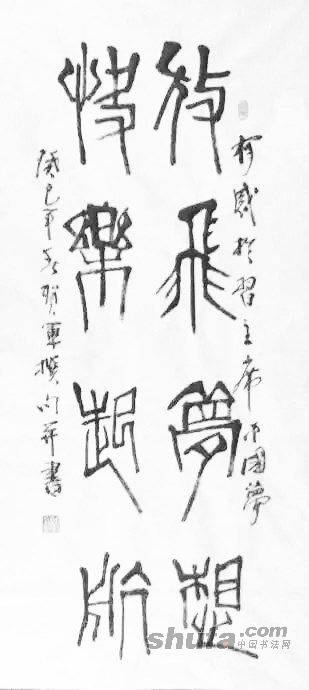 有感於習主席中國夢
放飛夢想
快樂起航
癸巳年賀軍撰句并書
shufa.com
中国书法网